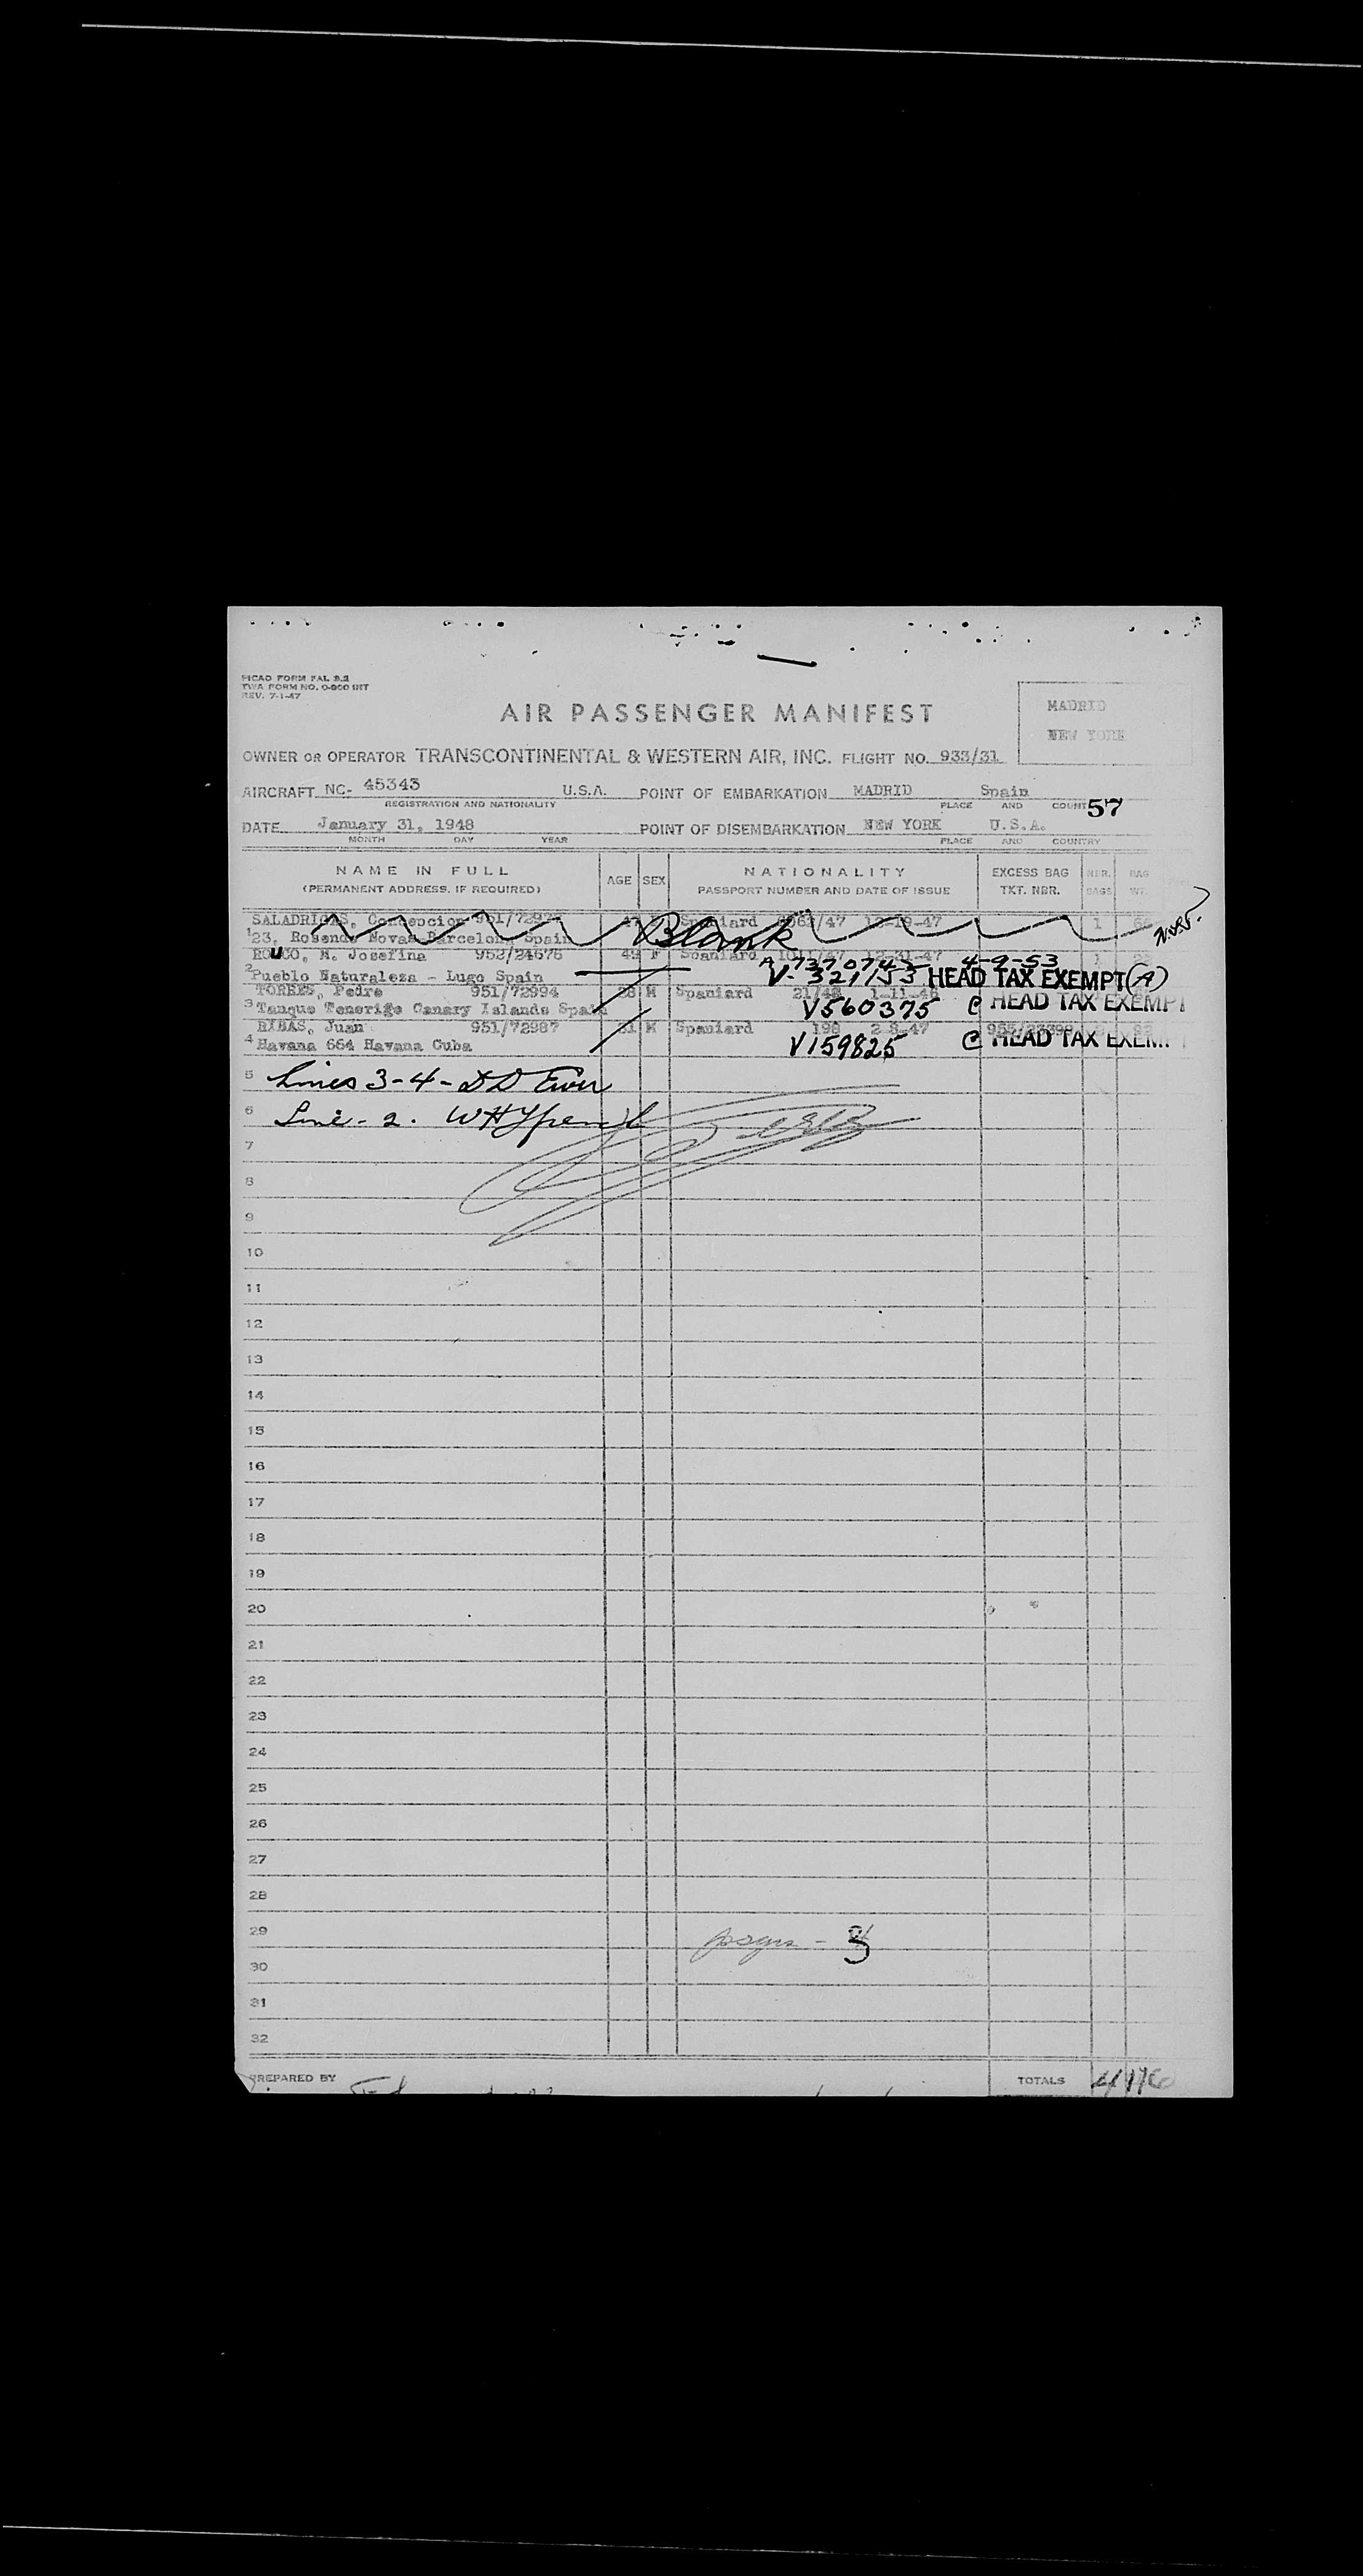 PICAO FORM FAL 3.2
TWA FORM NO. 0-900 INT
REV. 7-1-47
AIR PASSENGER MANIFEST
MADRID
NEW YORK
OWNER OR OPERATOR TRANSCONTINENTAL & WESTERN AIR, INC. FLIGHT NO. 933/31
AIRCRAFT NC- 45343 U.S.A. POINT OF EMBARKATION MADRID Spain
REGISTRATION AND NATIONALITY PLACE AND COUNT
57
DATE January 31, 1948 POINT OF DISEMBARKATION NEW YORK U.S.A.
MONTH DAY YEAR PLACE AND COUNTRY
NAME IN FULL AGE SEX NATIONALITY EXCESS BAG NBR. BAG
(PERMANENT ADDRESS, IF REQUIRED) PASSPORT NUMBER AND DATE OF ISSUE TKT. NBR. BAGS WT.
SALADRIGAS, Concepcion Spaniard 12-19-47 1
Blank
1 23, Rosendo Novas Barcelona Spain
ROUCO, M. Josefina 952/24675 49 F Spaniard 12-31-47 1
A-7370743 4-9-53
2 Pueblo Naturaleza - Lugo Spain V-321753 HEAD TAX EXEMPT (A)
TORRES, Pedro 951/72994 M Spaniard 21/48 1-11-48
3 Tanque Tenerife Canary Islands Spain V560375 C HEAD TAX EXEMPT
RIBAS, Juan 951/72987 M Spaniard 198 2-8-47
4 Havana 664 Havana Cuba V159825 C HEAD TAX EXEM
5 Lines 3-4-
6 Line - 2.
7
8
9
10
11
12
13
14
15
16
17
18
19
20
21
22
23
24
25
26
27
28
29
30
31
32
PREPARED BY TOTALS